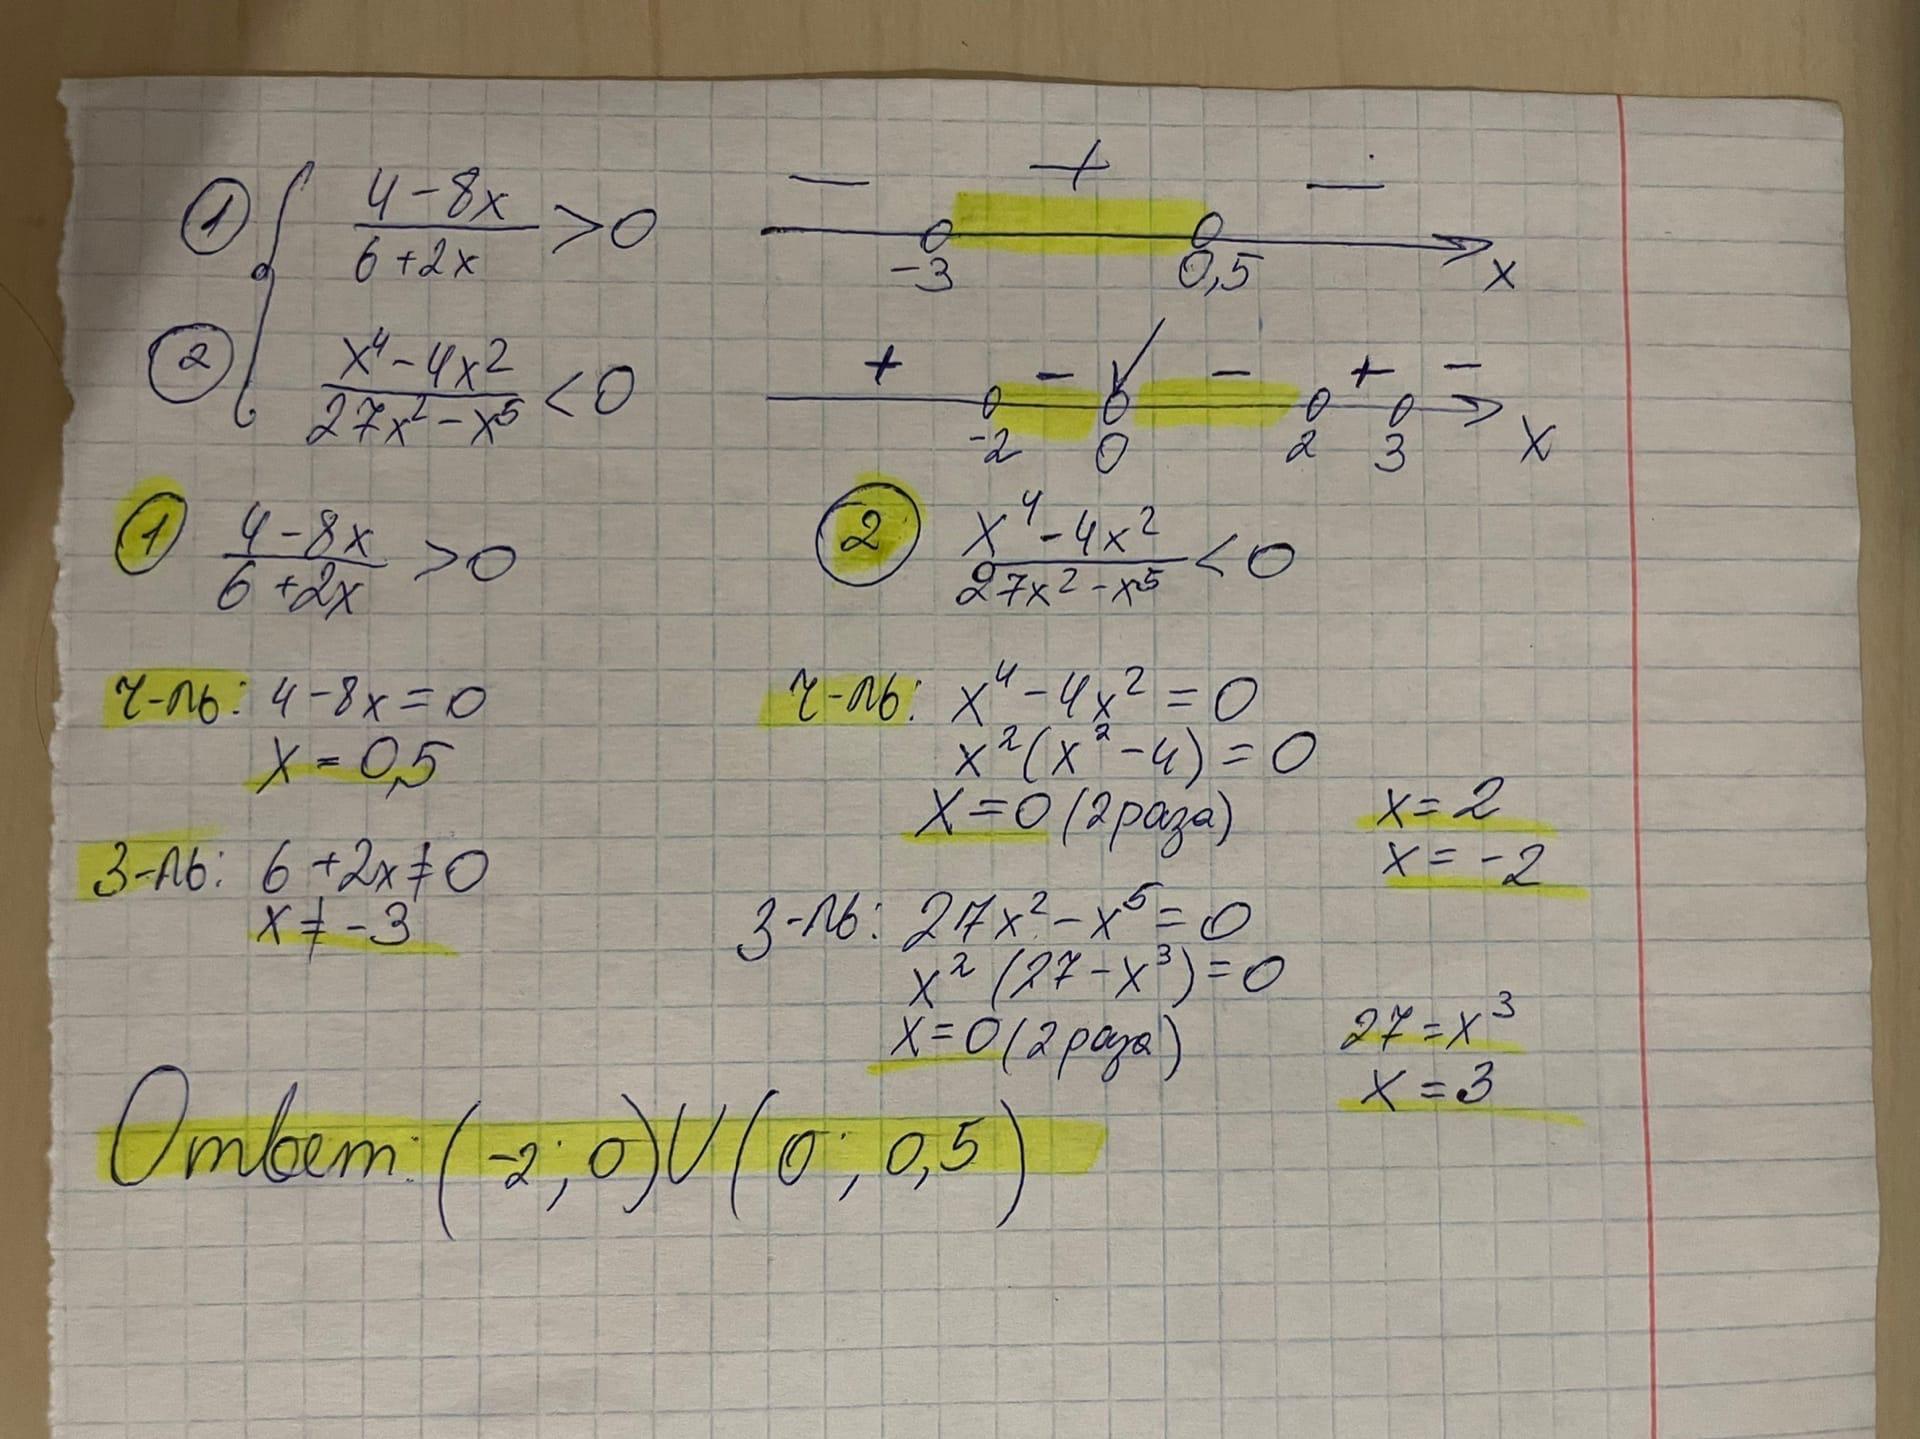 ① { (4-8x)/(6+2x) > 0
— + —
-3 0,5 x
② (x⁴-4x²)/(27x²-x⁵) < 0
+ - - + -
-2 0 2 3 x
① (4-8x)/(6+2x) > 0
ч-ль: 4-8x=0
x=0,5
з-ль: 6+2x≠0
x≠-3
② (x⁴-4x²)/(27x²-x⁵) < 0
ч-ль: x⁴-4x²=0
x²(x²-4)=0
x=0 (2 раза) x=2
x=-2
з-ль: 27x²-x⁵=0
x²(27-x³)=0
x=0 (2 раза) 27=x³
x=3
Ответ: (-2; 0)∪(0; 0,5)